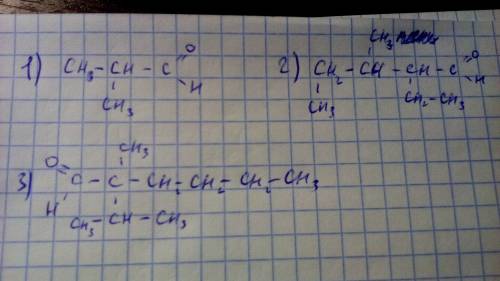 1) CH₃ – CH – C =O
H
CH₃
2) CH₃
CH₂ – CH – CH – C =O
H
CH₃ CH₂ – CH₃
3) CH₃
O= C – C – CH₂ – CH₂ – CH₂ – CH₃
H
CH₃ – CH – CH₃